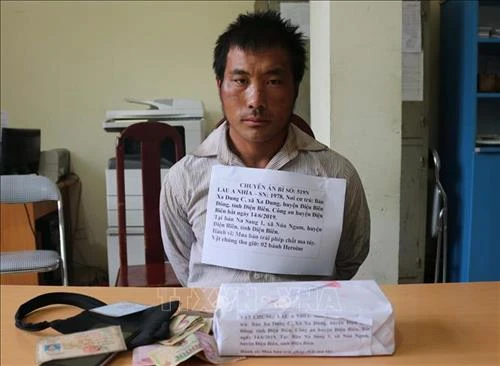 CHUYÊN ÁN BÍ SỐ: 519N
LẦU A NHÌA – SN: 1978, Nơi cư trú: Bản
Xa Dung C, xã Xa Dung, huyện Điện Biên
Đông, tỉnh Điện Biên. Công an huyện Điện
Biên bắt ngày 14/6/2019.
Tại bản Na Sang 1, xã Núa Ngam, huyện
Điện Biên, tỉnh Điện Biên.
Hành vi: Mua bán trái phép chất ma túy.
Vật chứng thu giữ: 02 bánh Heroine
TTXVN - VNA
VẬT CHỨNG: LẦU A NHÌA - SN: 1978, Nơi cư
trú: Bản Xa Dung C, xã Xa Dung, huyện Điện Biên
Đông, tỉnh Điện Biên. Công an huyện Điện Biên bắt
ngày 14/6/2019. Tại: Bản Na Sang 1, xã Núa Ngam,
huyện Điện Biên, tỉnh Điện Biên.
Hành vi: Mua bán trái phép chất ma túy.